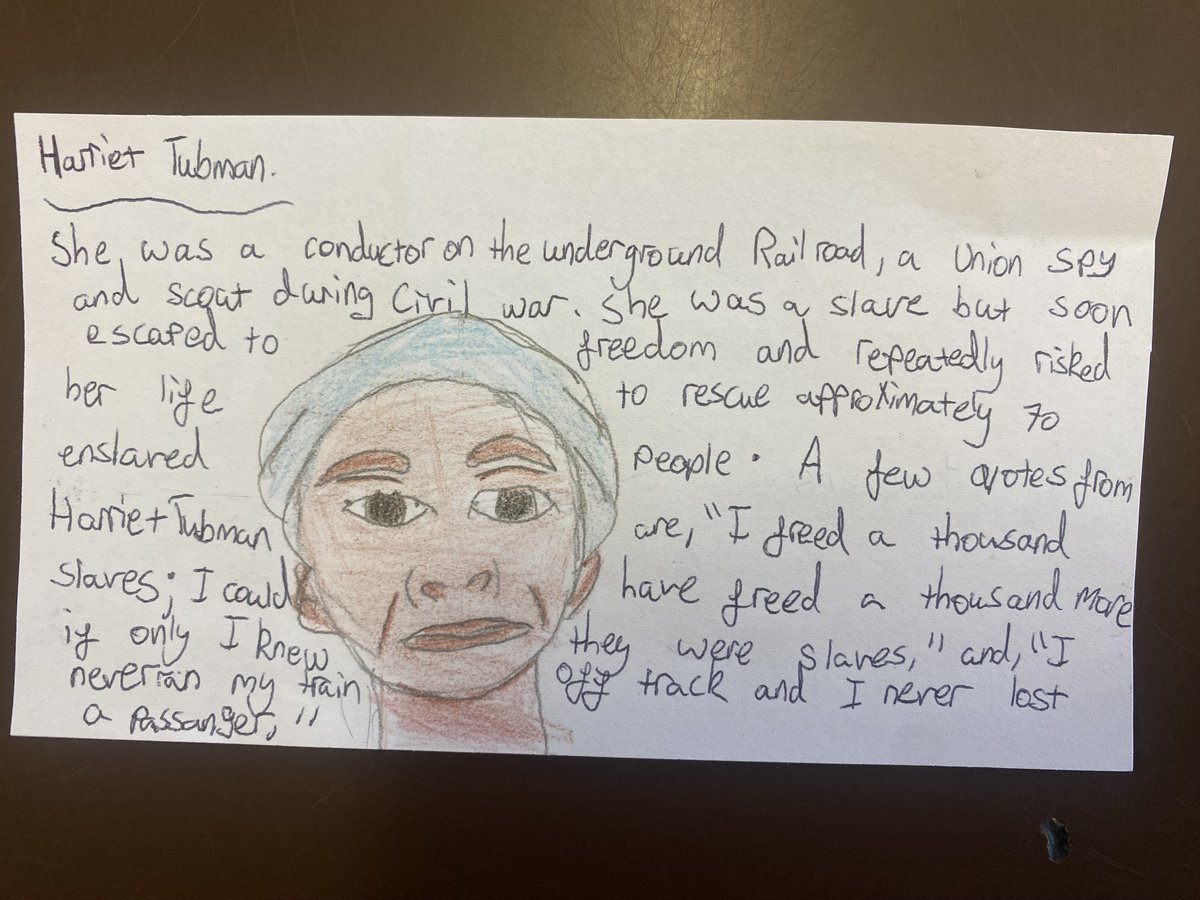 Harriet Tubman.
She was a conductor on the underground Railroad, a Union spy
and scout during Civil war. She was a slave but soon
escaped to freedom and repeatedly risked
her life to rescue approximately 70
enslaved people. A few qotes from
Harriet Tubman are, "I freed a thousand
slaves; I could have freed a thousand more
if only I knew they were slaves," and, "I
never ran my train off track and I never lost
a passanger,"